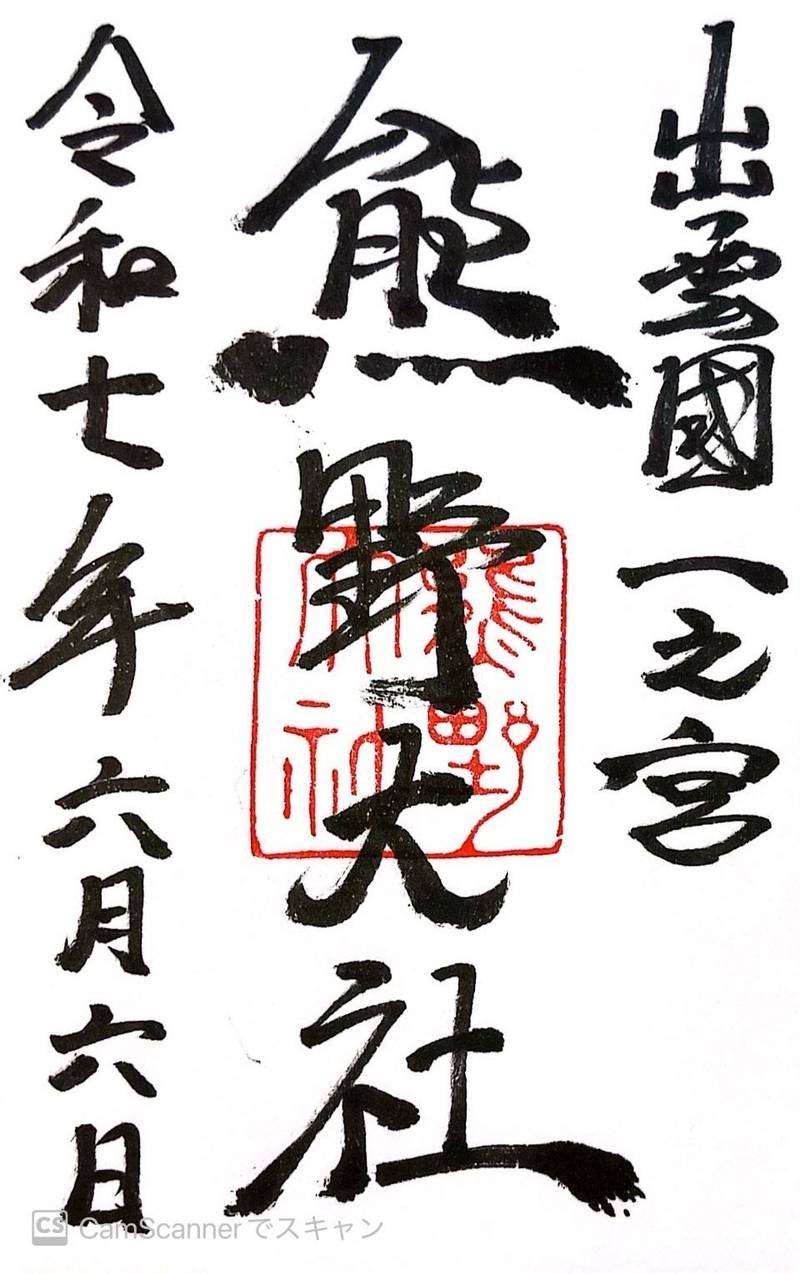 出雲國一之宮
熊野大社
令和七年六月六日
熊野
神社
CS CamScannerでスキャン